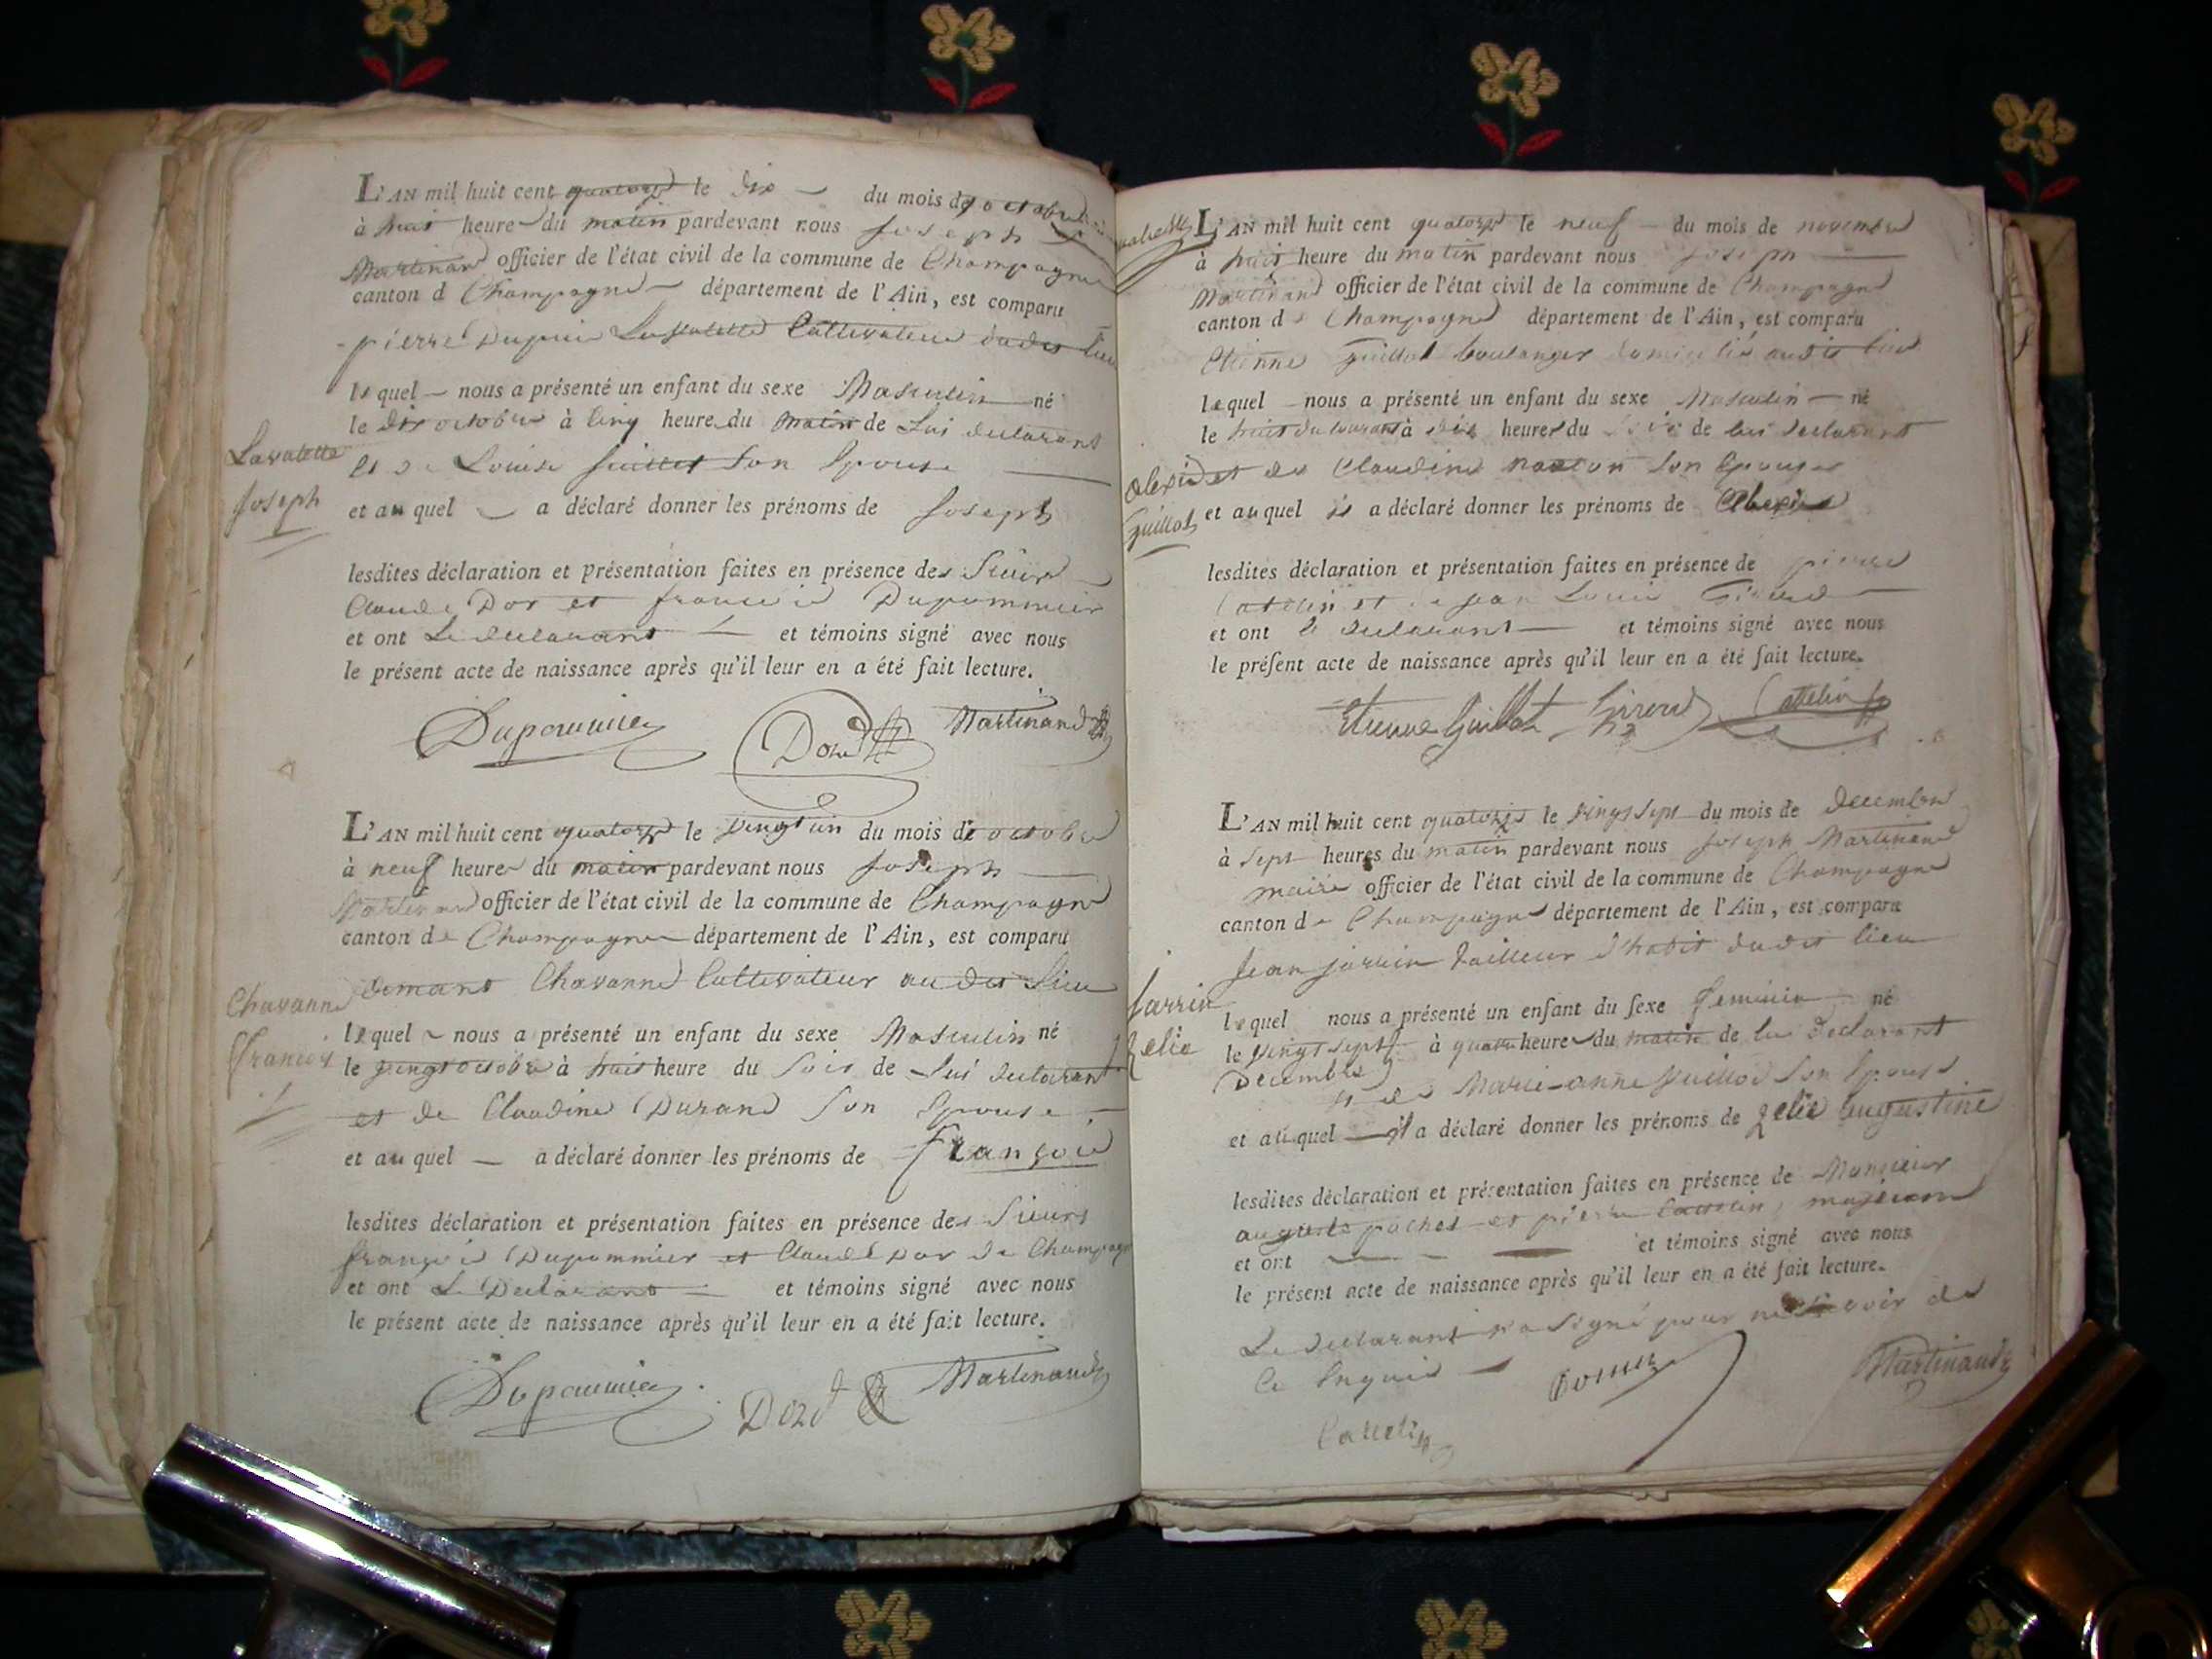 L'AN mil huit cent quatorze le dix du mois de octobre
à huit heure du matin pardevant nous Joseph
Martinand officier de l'état civil de la commune de Champagne
canton d Champagne département de l'Ain, est comparu
pierre Lavalette Cultivateur dudit lieu
lequel nous a présenté un enfant du sexe Masculin né
le dix octobre à Cinq heure du matin de Lui declarant
Lavalette
et de Louise Guillot Son Epouse
Joseph
et auquel a déclaré donner les prénoms de Joseph
lesdites déclaration et présentation faites en présence des Sieurs
Claude Dor et francois Dupommier
et ont Le declarant et témoins signé avec nous
le présent acte de naissance après qu'il leur en a été fait lecture.
Dupommier Dord Martinand
L'AN mil huit cent quatorze le vingt un du mois de octobre
à neuf heure du matin pardevant nous Joseph
Martinand officier de l'état civil de la commune de Champagne
canton de Champagne département de l'Ain, est comparu
Chavanne Cultivateur au dit Lieu
Chavanne
lequel nous a présenté un enfant du sexe Masculin né
francois
le vingt octobre à huit heure du Soir de Lui declarant
et de Claudine Durand Son Epouse
et auquel a déclaré donner les prénoms de François
lesdites déclaration et présentation faites en présence des Sieurs
françois Dupommier et Claude Dor de Champagne
et ont Le Declarant et témoins signé avec nous
le présent acte de naissance après qu'il leur en a été fait lecture.
Dupommier Dord Martinand
L'AN mil huit cent quatorze le neuf du mois de novembre
à huit heure du matin pardevant nous Joseph
Martinand officier de l'état civil de la commune de Champagne
canton de Champagne département de l'Ain, est comparu
Etienne Guillot boulanger domicilié audit lieu
lequel nous a présenté un enfant du sexe Masculin né
le huit du courant à dix heures du soir de lui declarant
alexis et de Claudine Son Epouse
Guillot
et auquel il a déclaré donner les prénoms de Alexis
lesdites déclaration et présentation faites en présence de pierre
Cattelin et de jean Louis Giroud
et ont le declarant et témoins signé avec nous
le présent acte de naissance après qu'il leur en a été fait lecture.
Etienne Guillot Giroud Cattelin
L'AN mil huit cent quatorze le vingt sept du mois de decembre
à sept heures du matin pardevant nous Joseph Martinand
maire officier de l'état civil de la commune de Champagne
canton de Champagne département de l'Ain, est comparu
Jean jarrin tailleur d'habit dudit lieu
Jarrin
lequel nous a présenté un enfant du sexe feminin né
Zelie
le vingt sept à quatre heures du matin de lui declarant
Decembre
et de Marie-anne Guillot Son Epouse
et auquel il a déclaré donner les prénoms de Zelie augustine
lesdites déclaration et présentation faites en présence de Monsieur
auguste pochet et pierre Cattelin,
et ont et témoins signé avec nous
le présent acte de naissance après qu'il leur en a été fait lecture.
Le declarant n'a signé pour ne savoir de
Ce Enquis Martinand
Cattelin